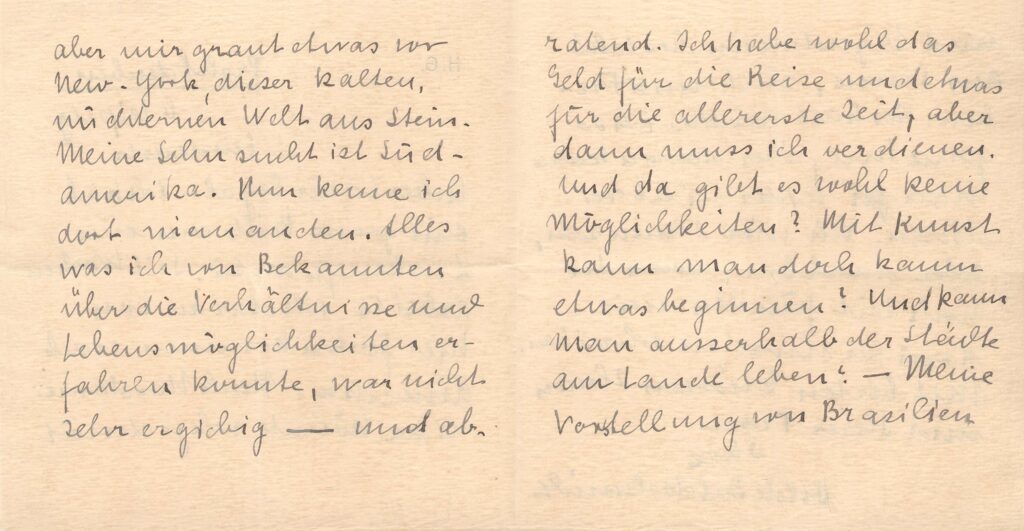 aber mir graut etwas vor
New-York, dieser kalten,
nüchternen Welt aus Stein.
Meine Sehnsucht ist Süd-
amerika. Nun kenne ich
dort niemanden. Alles
was ich von Bekannten
über die Verhältnisse und
Lebensmöglichkeiten er-
fahren konnte, war nicht
sehr ergiebig — und ab-
ratend. Ich habe wohl das
Geld für die Reise und etwas
für die allererste Zeit, aber
dann muss ich verdienen.
Und da gibt es wohl keine
Möglichkeiten? Mit Kunst
kann man doch kaum
etwas beginnen? Und kann
man ausserhalb der Städte
am Lande leben? — Meine
Vorstellung von Brasilien